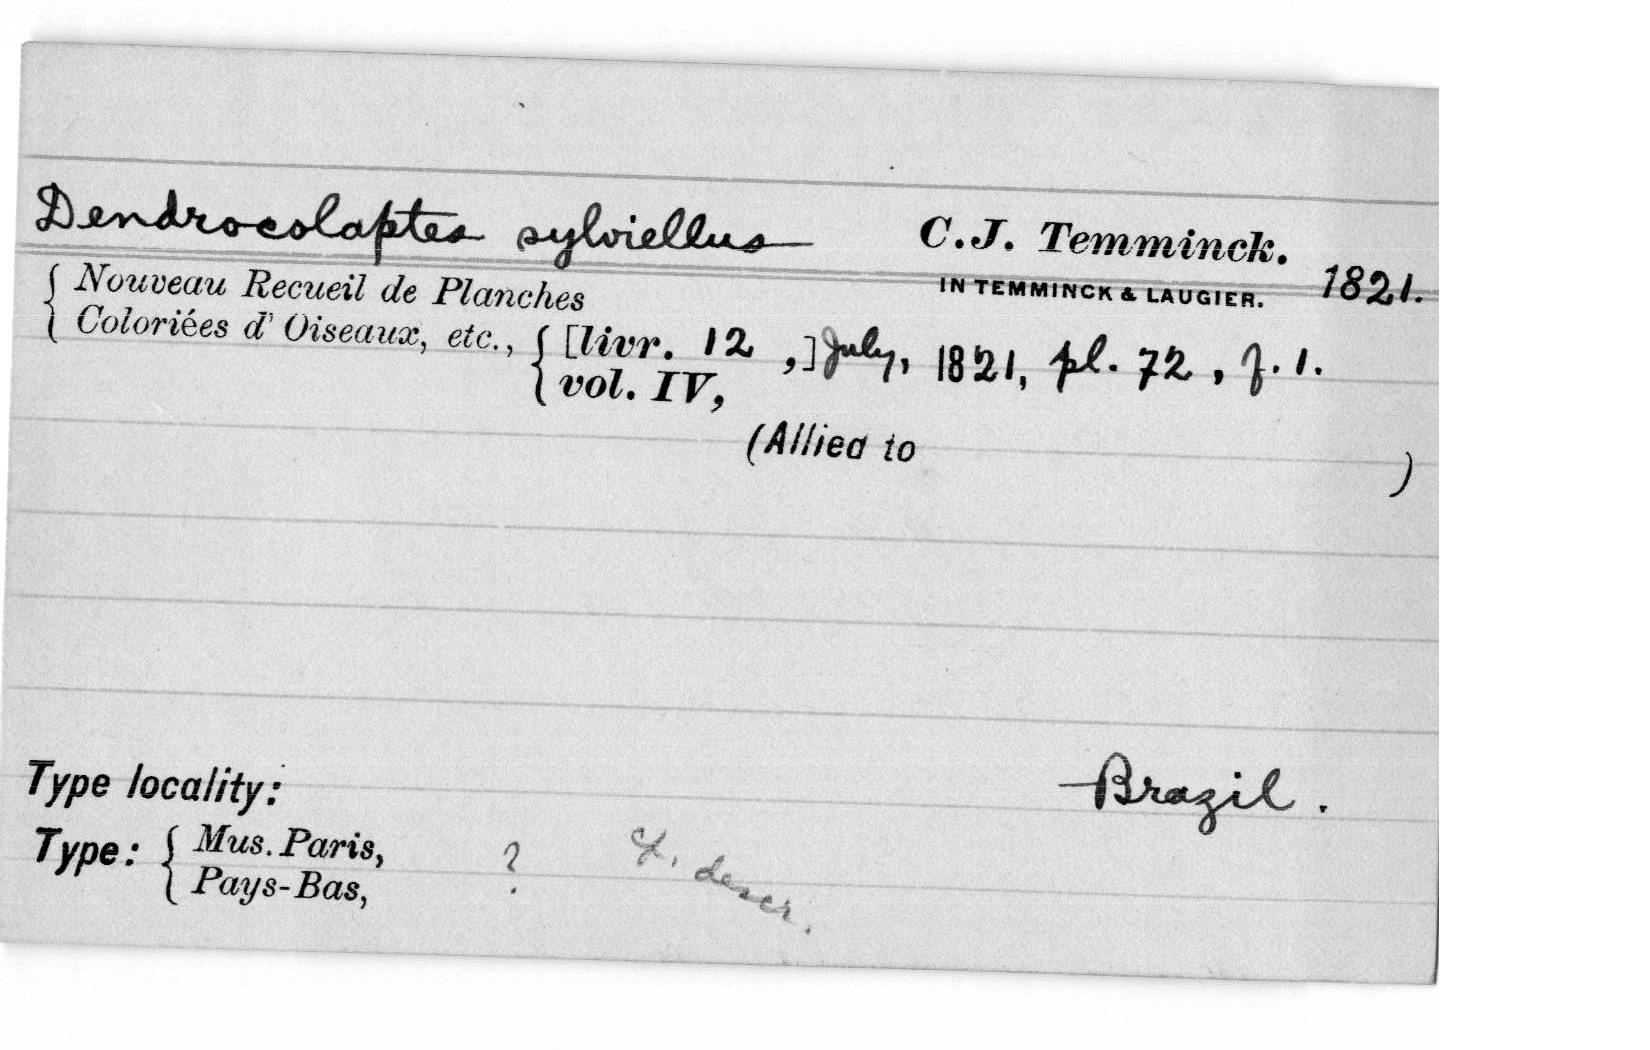 Dendrocolaptes sylviellus C.J. Temminck.
IN TEMMINCK & LAUGIER. 1821.
{ Nouveau Recueil de Planches
Coloriées d' Oiseaux, etc., { [livr. 12 ,] July, 1821, pl. 72, f. 1.
vol. IV,
(Allied to )
Type locality: Brazil.
Type: { Mus. Paris, ? descr.
Pays-Bas,